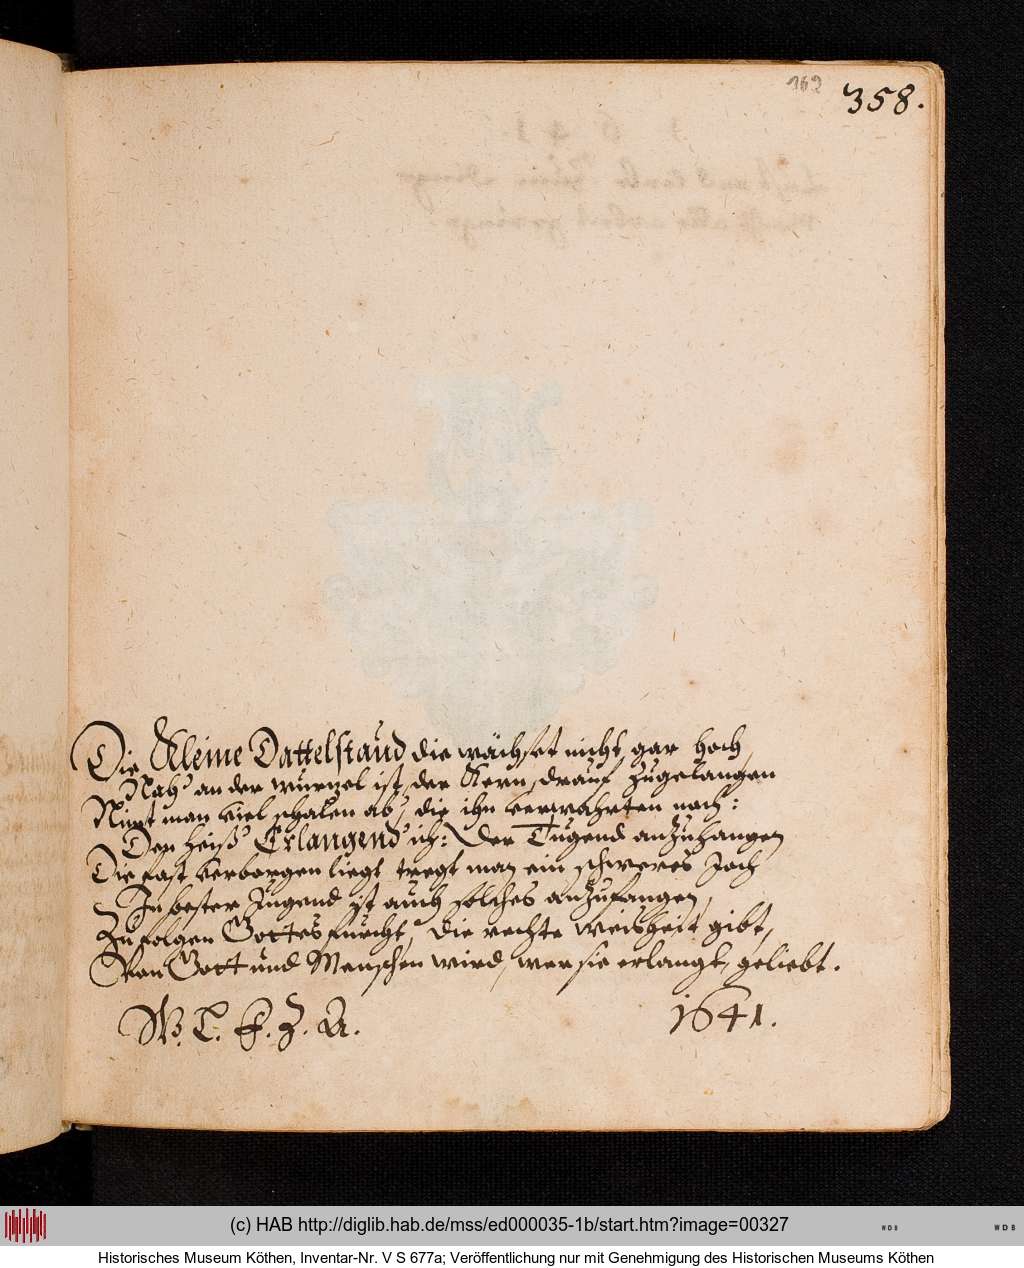 162
358.
Die Kleine Dattelstaud die wächset nicht gar hoch,
Nah' an der wurzel ist, der Kern, drauf zugelangen
Nimt man viel schalen ab', die ihn verwahrten noch:
Den heiß' Erlangend' ich: Der Tugend anzuhangen
Die fast verborgen liegt tregt man ein schweres Joch
In bester Jugend ist auch solches anzufangen,
Zu folgen Gottesfurcht, die rechte weisheit gibt,
Von Gott und Menschen wird, wer sie erlangt, geliebt.
W. L. F. Z. A. 1641.
(c) HAB http://diglib.hab.de/mss/ed000035-1b/start.htm?image=00327
WDB
WDB
Historisches Museum Köthen, Inventar-Nr. V S 677a; Veröffentlichung nur mit Genehmigung des Historischen Museums Köthen